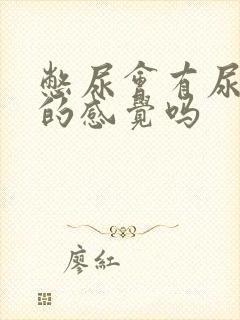 憋尿會有尿
的感覺吗
廖紅